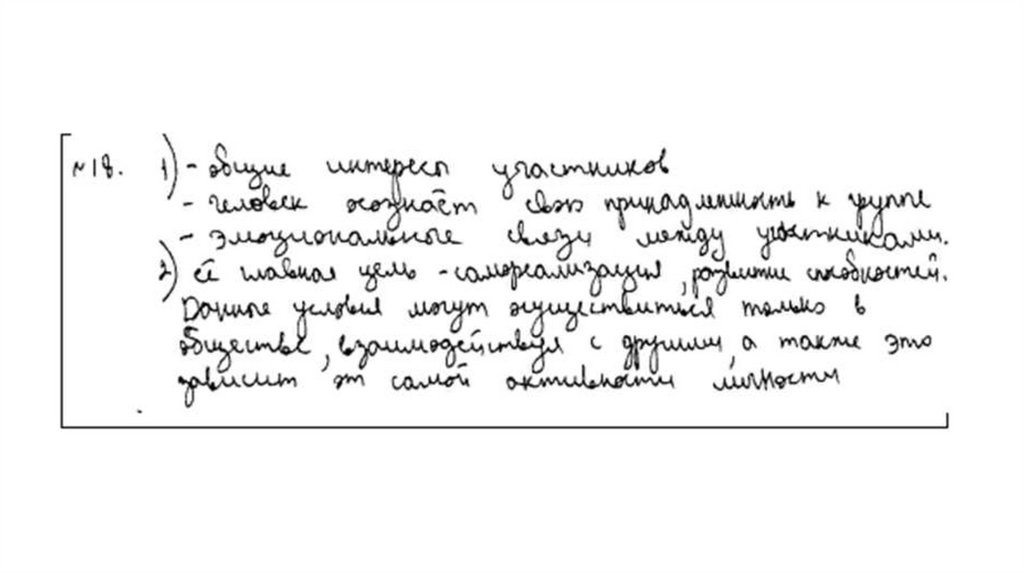 №18. 1) - общие интересы участников
- человек осознаёт свою принадлежность к группе
- эмоциональные связи между участниками.
2) её главная цель - самореализация, развитие способностей.
Данные условия могут осуществиться только в
обществе, взаимодействуя с другими, а также это
зависит от самой активности личности